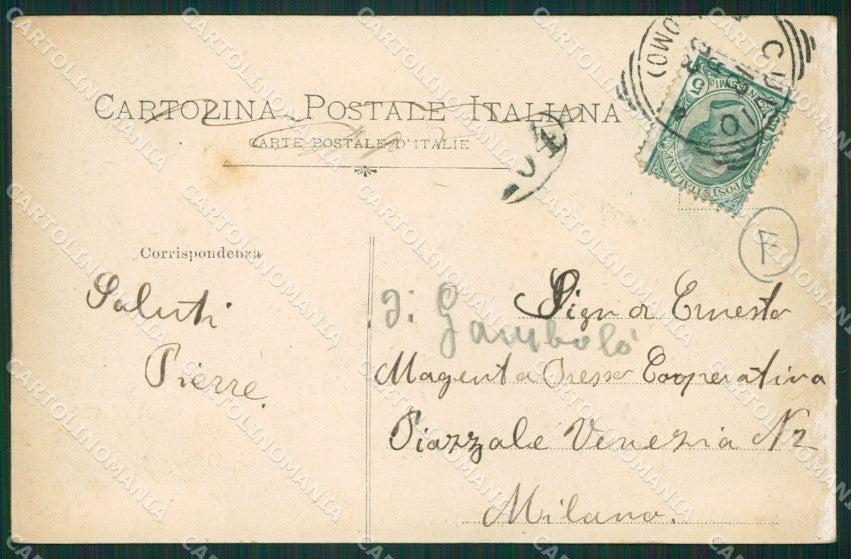 CARTOLINA POSTALE ITALIANA
CARTE POSTALE D'ITALIE
Corrispondenza
Saluti
Pierre.
Signor Ernesto
Gambolò
Magenta Presso Cooperativa
Piazzale Venezia N 2
Milano.
F
04
(COMO)
10
POSTE ITALIANE
CARTOLINOMANIA